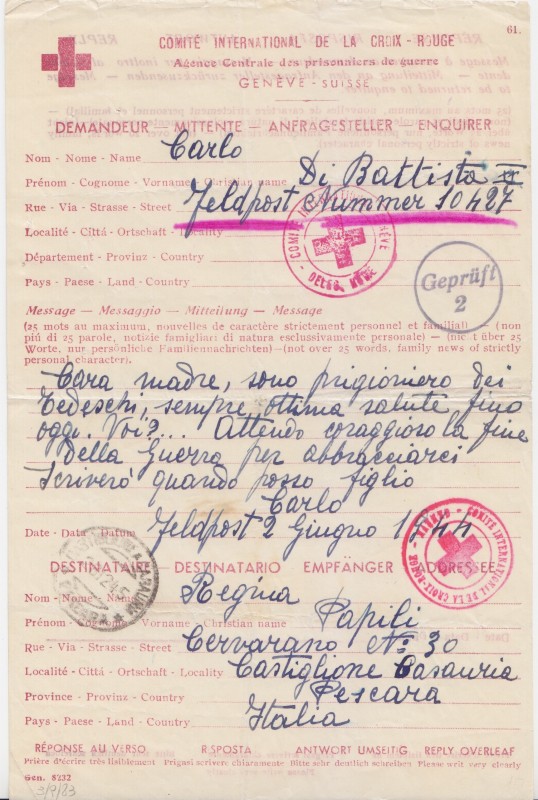 61.
COMITÉ INTERNATIONAL DE LA CROIX-ROUGE
Agence Centrale des prisonniers de guerre
GENÈVE - SUISSE
DEMANDEUR — MITTENTE — ANFRAGESTELLER — ENQUIRER
Nom - Nome - Name Carlo
Prénom - Cognome - Vorname - Christian name Di Battista
Rue - Via - Strasse - Street Feldpost Nummer 10427
Localité - Cittá - Ortschaft - Locality
Département - Provinz - Country
Pays - Paese - Land - Country
COMITÉ GENÈVE
DELEG. ROME
Geprüft
2
Message — Messaggio — Mitteilung — Message
(25 mots au maximum, nouvelles de caractère strictement personnel et familial) — (non
piú di 25 parole, notizie famigliari di natura esclussivamente personale) — (nicht über 25
Worte, nur persönliche Familiennachrichten)—(not over 25 words, family news of strictly
personal character).
Cara madre, sono prigioniero dei
Tedeschi, sempre ottima salute fino
oggi. Voi?... Attendo coraggioso la fine
della Guerra per abbracciarci
Scriveró quando posso figlio
Carlo
Date - Data - Datum Feldpost 2 Giugno 1944
COMITÉ INTERNATIONAL DE LA CROIX-ROUGE
DESTINATAIRE DESTINATARIO EMPFÄNGER ADDRESSEE
Nom - Nome - Name Regina
Prénom - Cognome Vorname - Christian name Papili
Rue - Via - Strasse - Street Cervarano No 30
Localité - Cittá - Ortschaft - Locality Castiglione Casauria
Province - Provinz - Country Pescara
Pays - Paese - Land - Country Italia
RÉPONSE AU VERSO RISPOSTA ANTWORT UMSEITIG REPLY OVERLEAF
Prière d'écrire très lisiblement Prigasi scrivere chiaramente Bitte sehr deutlich schreiben Please writ very clearly
Gen. 8232
3/9/83